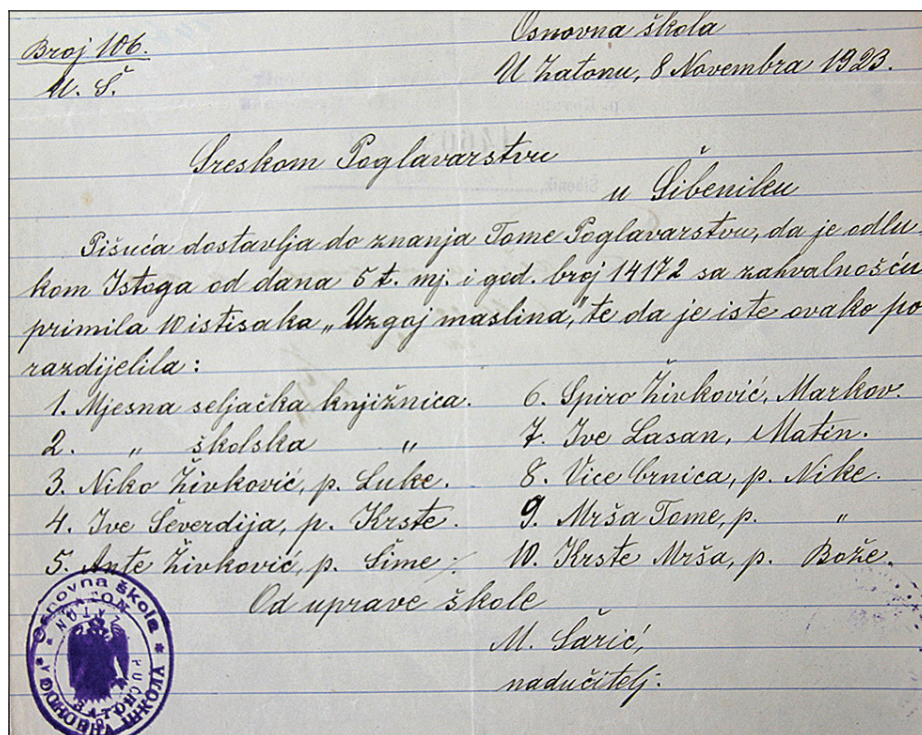 Osnovna škola
Broj 106.
U Zatonu, 8 Novembra 1923.
U. Š.
Sreskom Poglavarstvu
u Šibeniku
Pišuća dostavlja do znanja Tome Poglavarstvu, da je odlu
kom Istoga od dana 5 t. mj. i god. broj 14172 sa zahvalnošću
primila 10 istisaka „Uzgoj maslina," te da je iste ovako po
razdijelila:
1. Mjesna seljačka knjižnica.
2. „ školska „
3. Niko Živković, p. Luke.
4. Ive Ševerdija, p. Krste.
5. Ante Živković, p. Šime
6. Spiro Živković, Markov.
7. Ive Lasan, Matin.
8. Vice Crnica, p. Nike.
9. Mrša Tome, p. „
10. Krste Mrša, p. Bože.
Od uprave škole
M. Šarić,
nadučitelj.
Osnovna škola
ОСНОВНА ШКОЛА